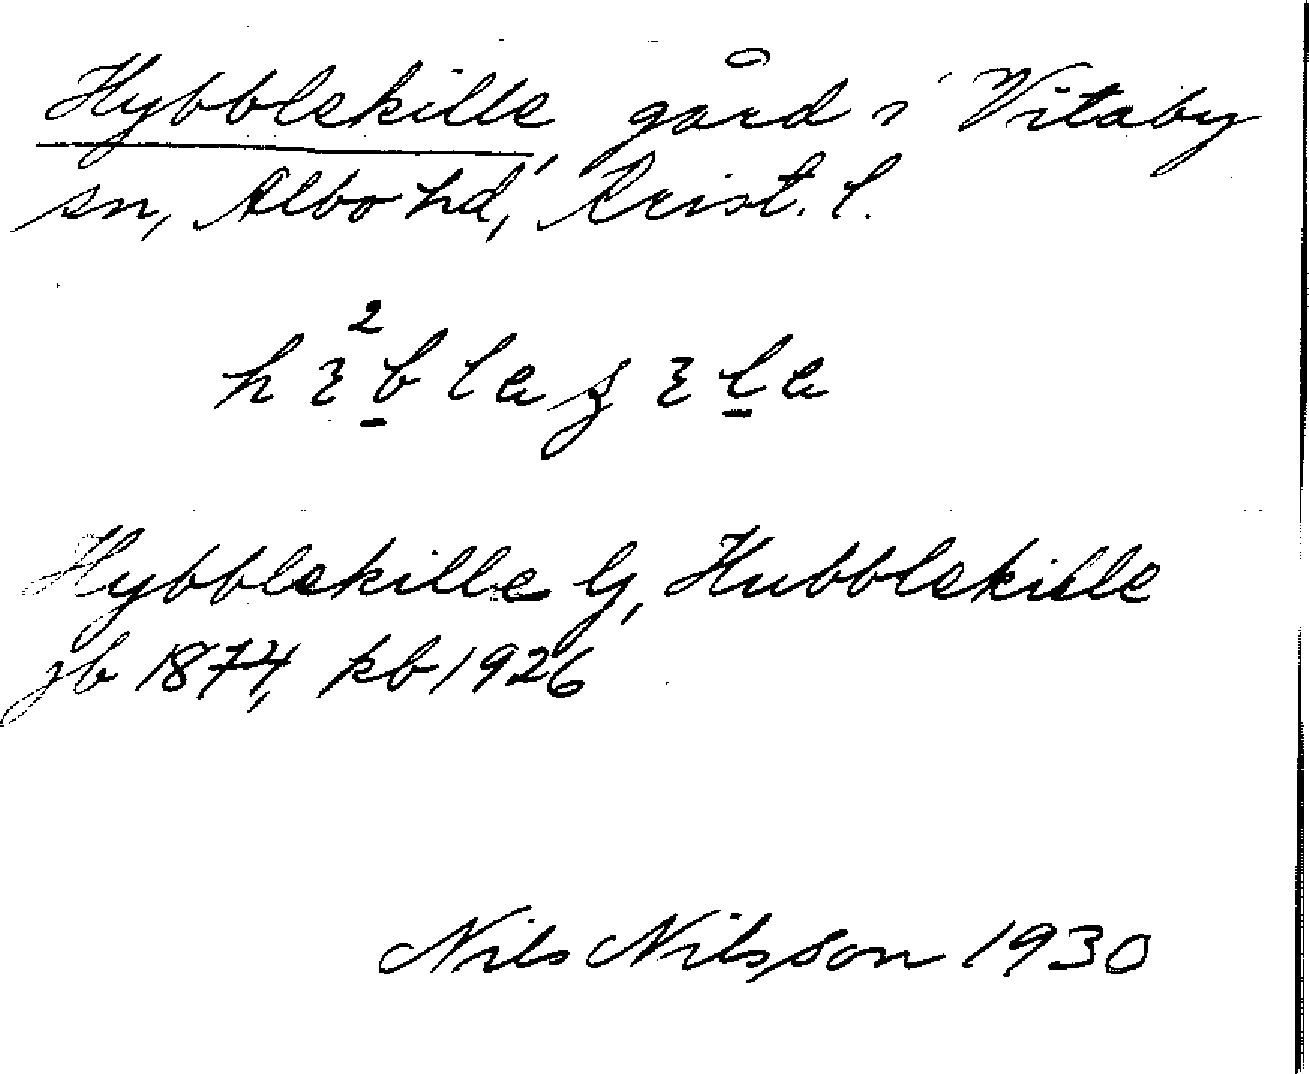 Hybblekille, gård i Vitaby
sn, Albo hd, Krist. l.
Hybblekille G, Hubblekille
jb 1874, kb 1926
Nils Nilsson 1930